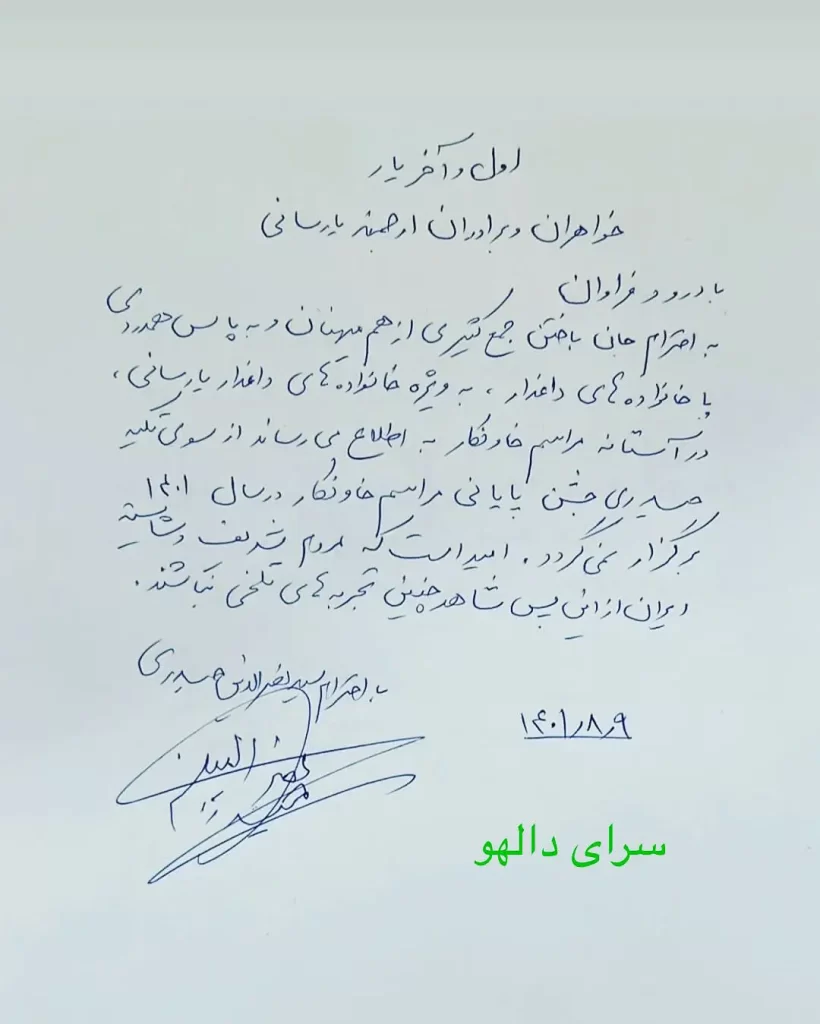 اول و آخر یار
خواهران و برادران ارجمند یارسانی
با درود فراوان
به احترام جان باختن جمع کثیری از هم میهنان و به پاس همدردی
با خانواده‌های داغدار ، به ویژه خانواده‌های داغدار یارسانی ،
در آستانه مراسم خاونکار به اطلاع می رساند از سوی تکیه
حیدری جشن پایانی مراسم خاونکار در سال ۱۴۰۱
برگزار نمی گردد . امید است که مردم شریف و شایسته
ایران از این پس شاهد چنین تجربه‌های تلخی نباشند .
با احترام سید نصرالدین حیدری
۱۴۰۱٫۸٫۹
سرای دالهو